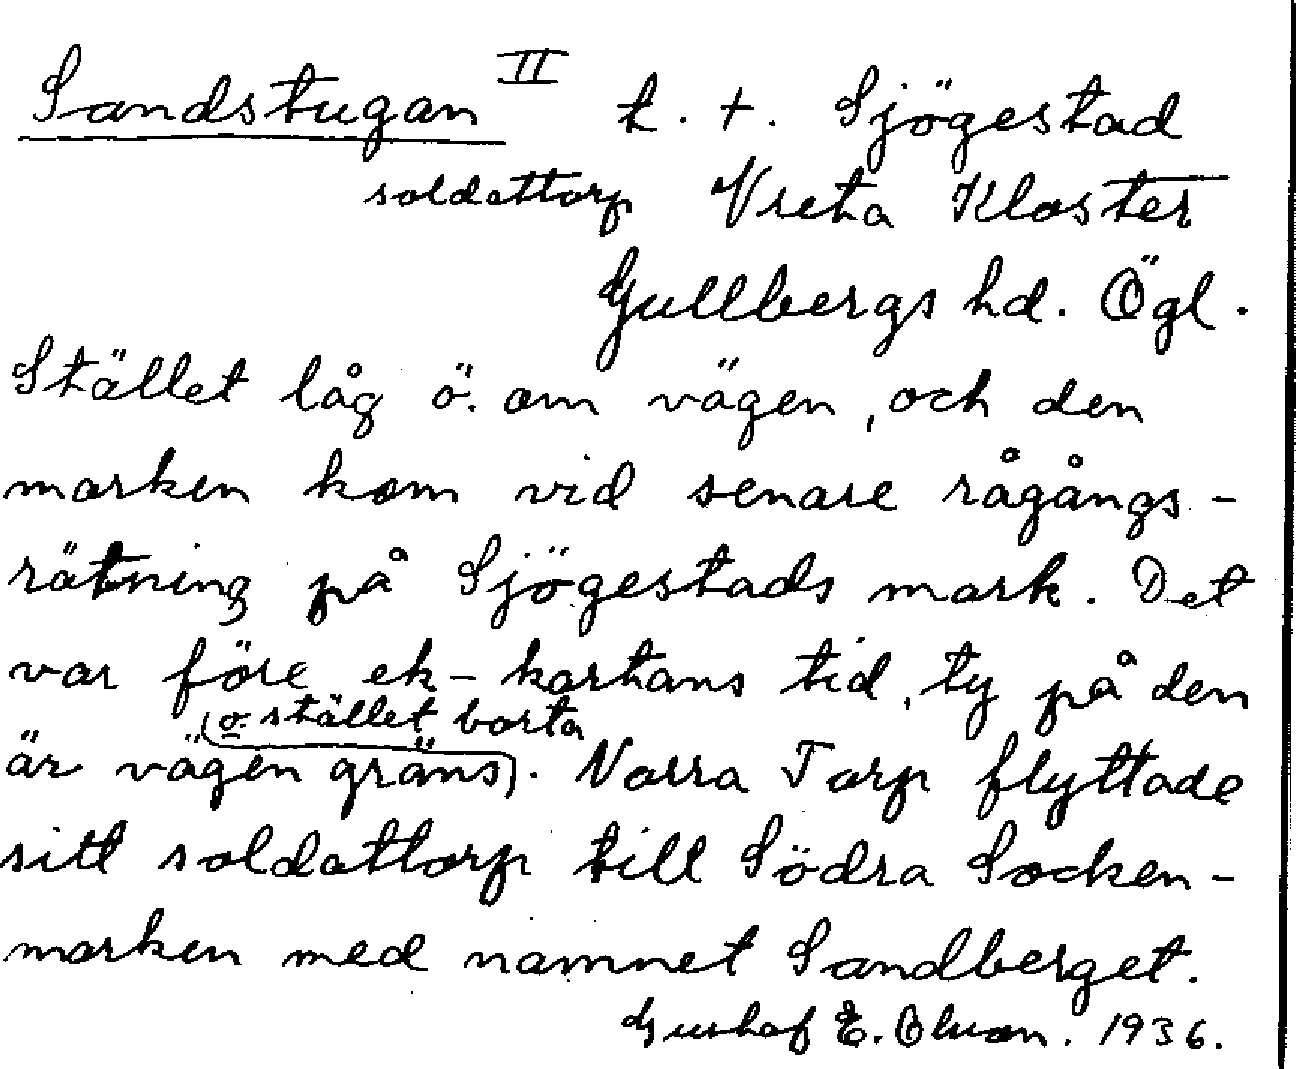 Sandstugan II t. +. Sjögestad
soldattorp Vreta Kloster
Gullbergs hd. Ögl.
Stället låg ö. om vägen, och den
marken kom vid senare rågångs-
rätning på Sjögestads mark. Det
var före ek-kartans tid, ty på den
är vägen gräns (o. stället borta). Norra Torp flyttade
sitt soldattorp till Södra Socken-
marken med namnet Sandberget.
Gustaf E. Olsson. 1936.